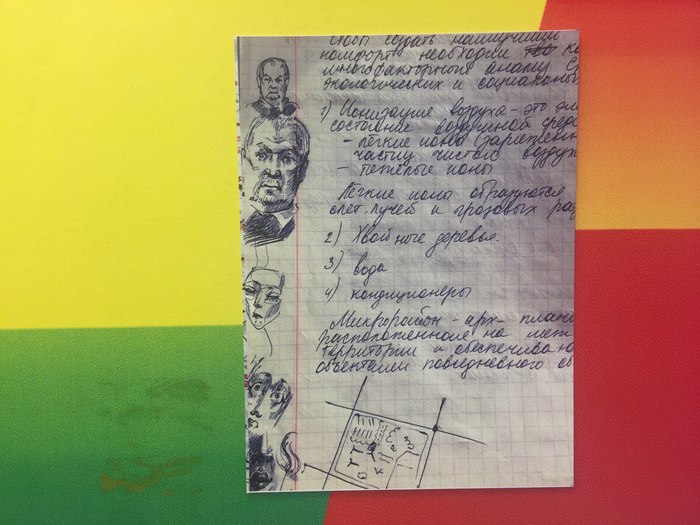 чтобы создать наилучший
комфорт необходим
многофакторный анализ
экологических и социальных
1) Ионизация воздуха - это
состояние воздушной
- лёгкие ионы (заряженн
частиц чистого воздуха
- тяжёлые ионы
Лёгкие ионы образуются
лучей и грозовых раз
2) Хвойные деревья.
3) вода
4) кондиционеры
Микрорайон - арх- плани
расположенное на меж
территории и обеспечива
объектами повседневного об